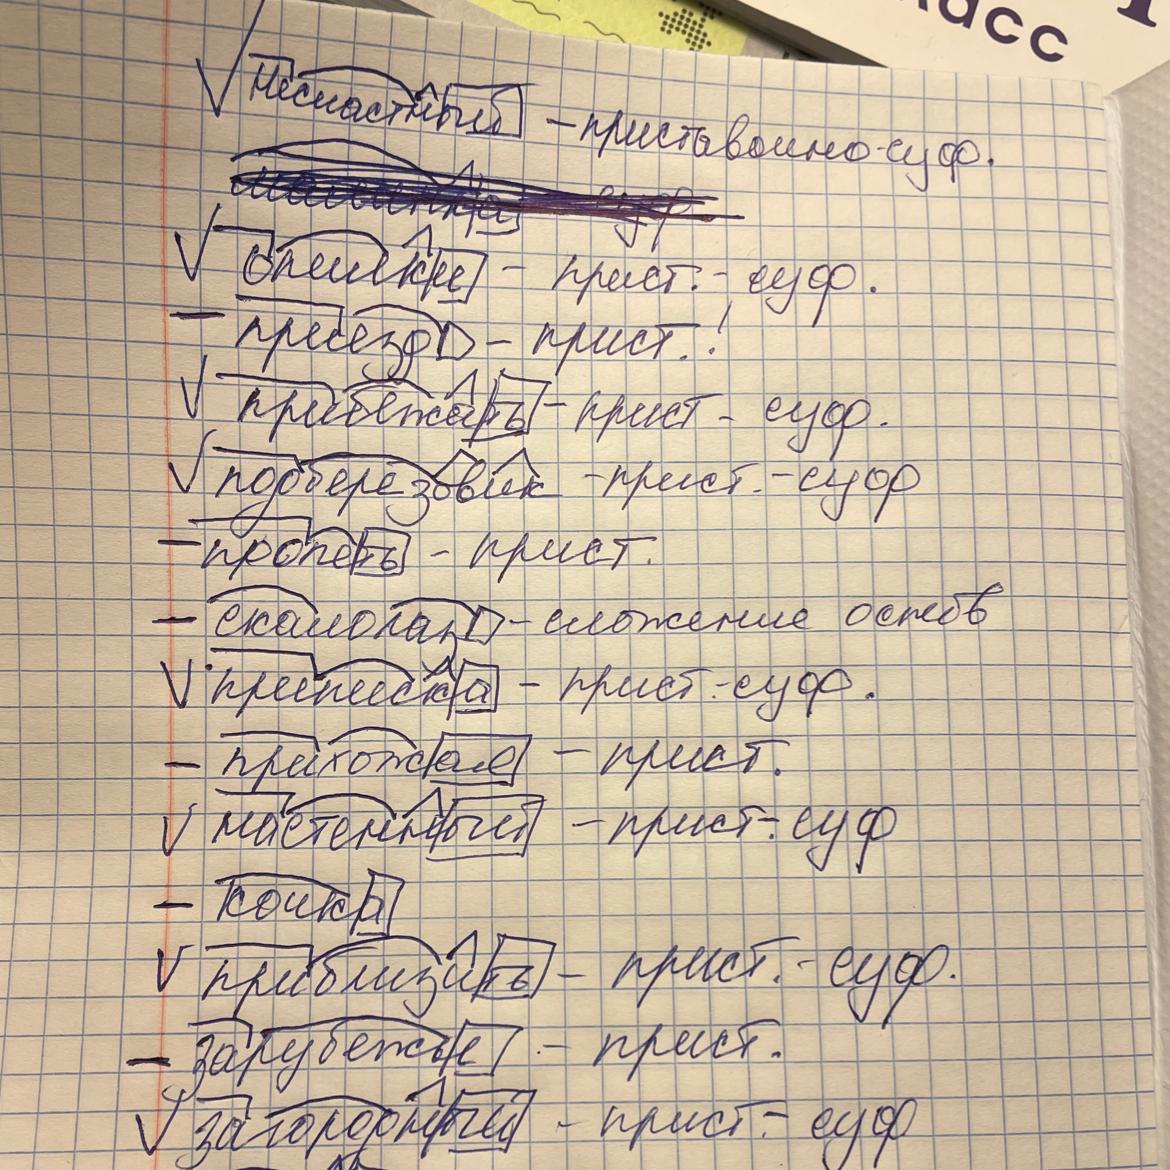 класс
√ Несчастный – приставочно-суф.
√ опилки – прист.- суф.
– приезд – прист.!
√ прибежать – прист - суф.
√ подберезовик – прист.-суф
– пропеть – прист.
– скалолаз – сложение основ
√ приписка – прист.-суф.
– прихожая – прист.
√ настенный – прист.-суф
– кочка
√ приблизить – прист.- суф.
– зарубежье – прист.
√ загородный – прист.- суф